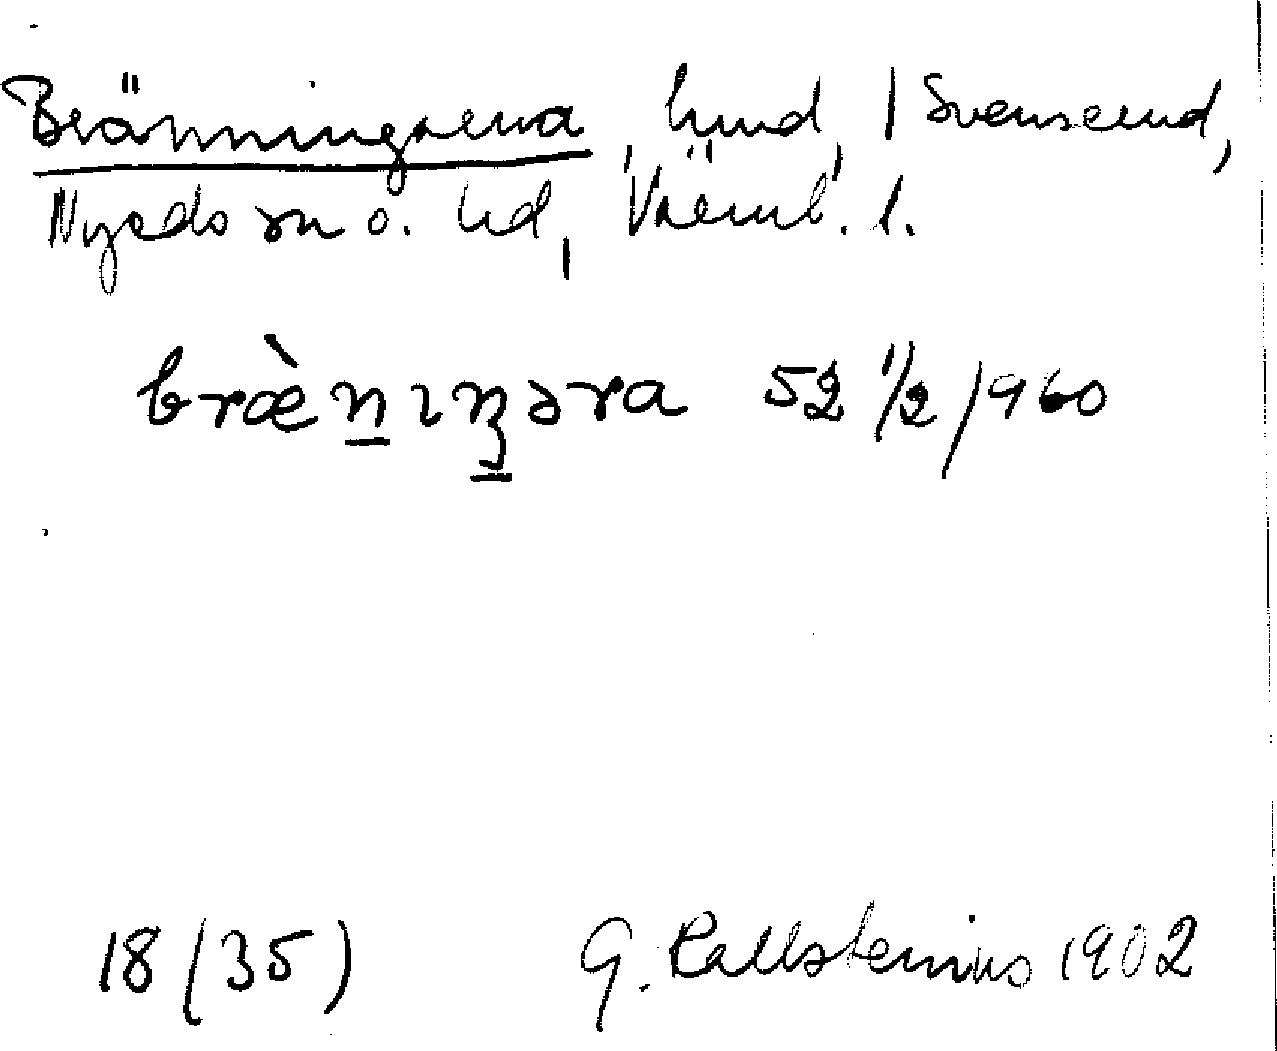 Bränningarna, hmd, 1 Svensrud,
Nyeds sn o. hd, Värml. l.
bræ̀n̲ɩŋ̲əra 52 1/2 1960
18 (35) G. Kallstenius 1902